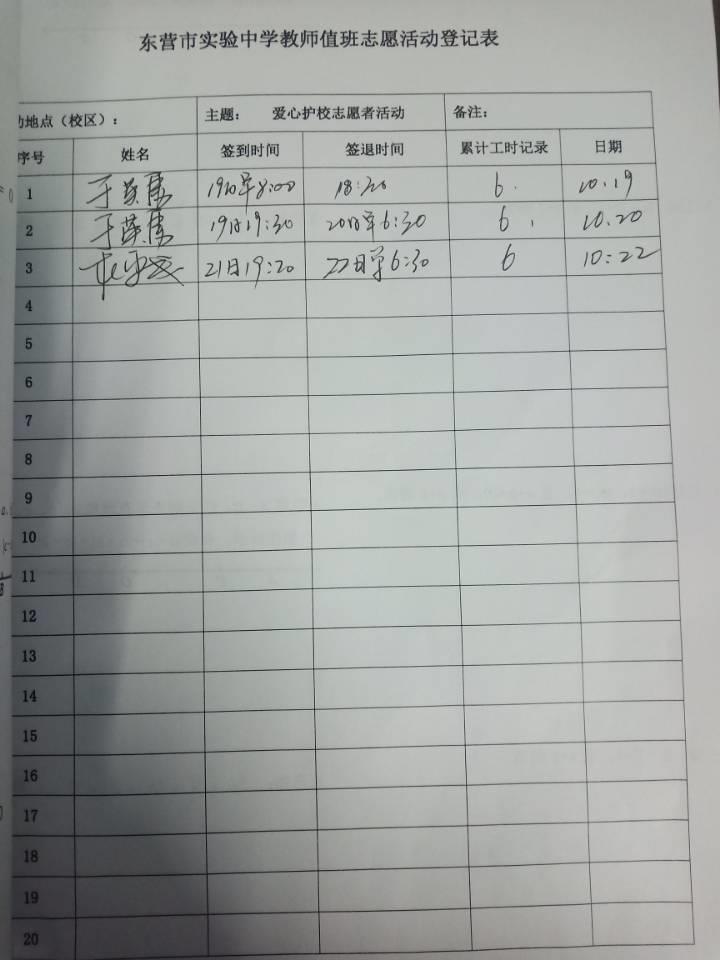 东营市实验中学教师值班志愿活动登记表
动地点（校区）： 主题： 爱心护校志愿者活动 备注：
序号 姓名 签到时间 签退时间 累计工时记录 日期
1 19日早8:00 18:30 6. 10.19
2 19日19:30 20日早6:30 6. 10.20
3 21日19:20 22日早6:30 6 10:22
4
5
6
7
8
9
10
11
12
13
14
15
16
17
18
19
20